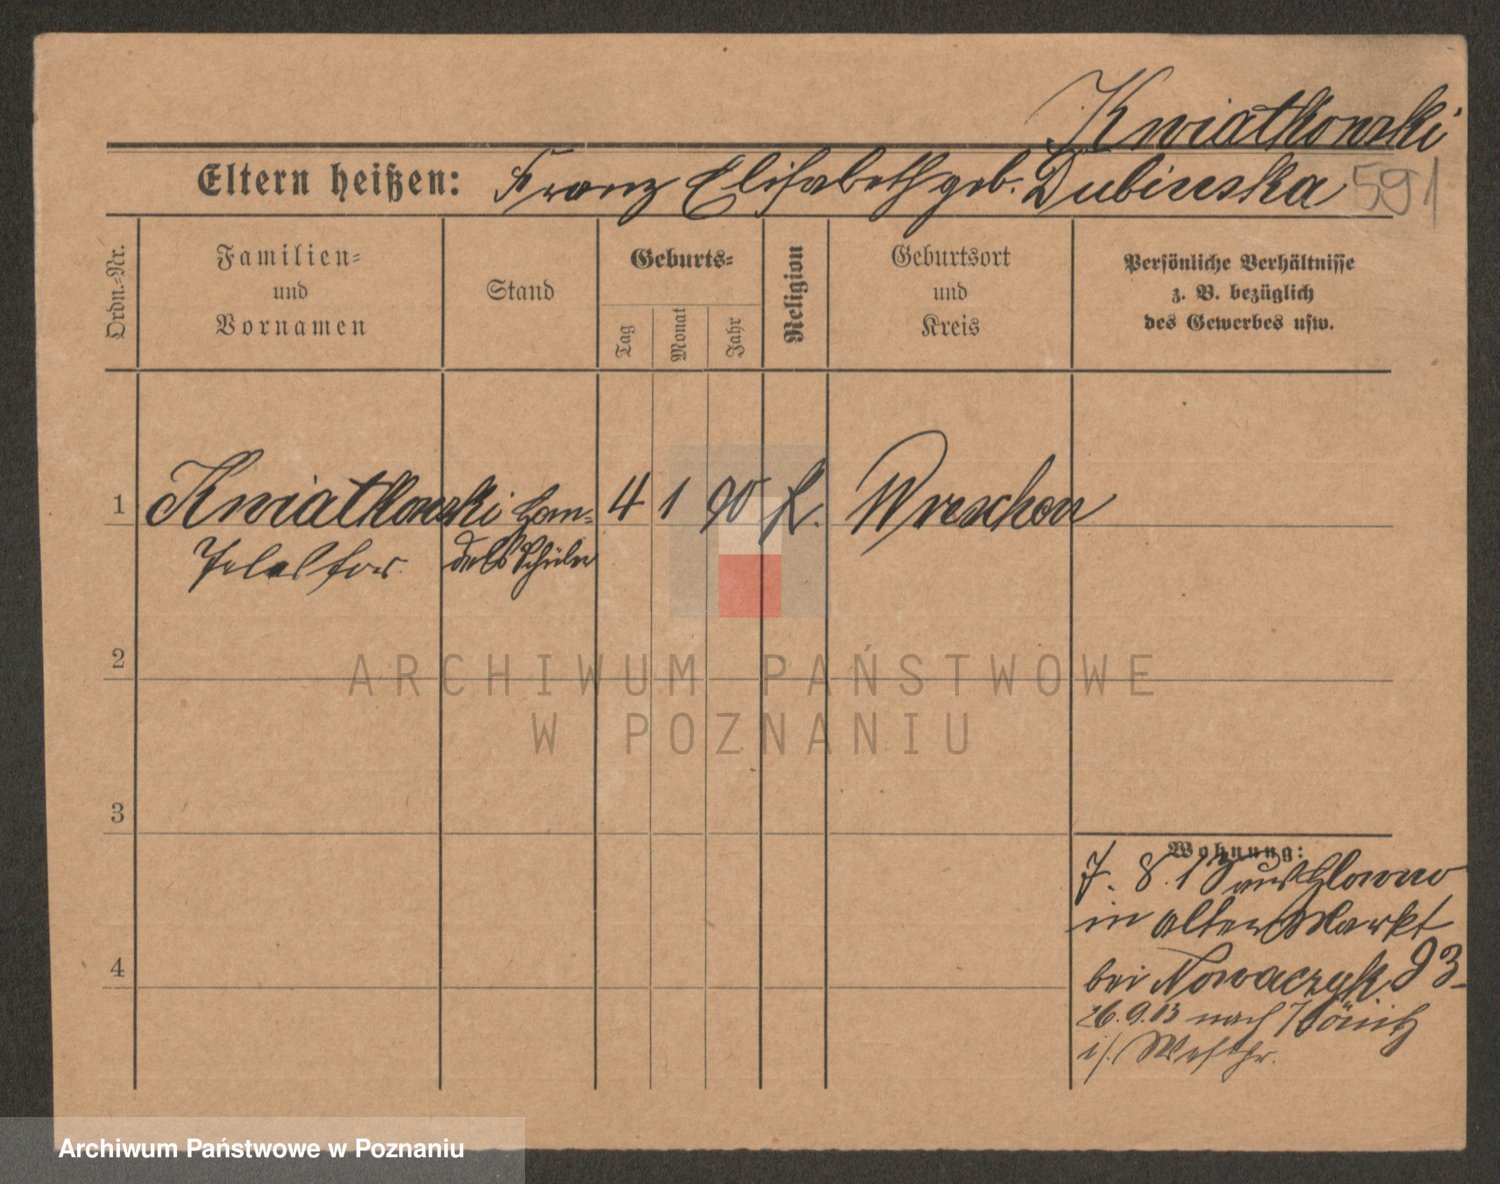 Kwiatkowski
Eltern heißen: Franz Elisabeth geb. Dubinska 591
Ordn.-Nr.
Familien-
und
Vornamen
Stand
Geburts-
Tag
Monat
Jahr
Religion
Geburtsort
und
Kreis
Persönliche Verhältnisse
z. B. bezüglich
des Gewerbes usw.
1 Kwiatkowski Han- 4 1 90 k. Wreschen
Telesfor. dels Schüler
2
3
4
Wohnung:
7. 8. 13 aus Glowno
in alter Markt
bei Nowaczyk 93
26.9.13 nach Könitz
i/. Westpr.
ARCHIWUM PAŃSTWOWE
W POZNANIU
Archiwum Państwowe w Poznaniu